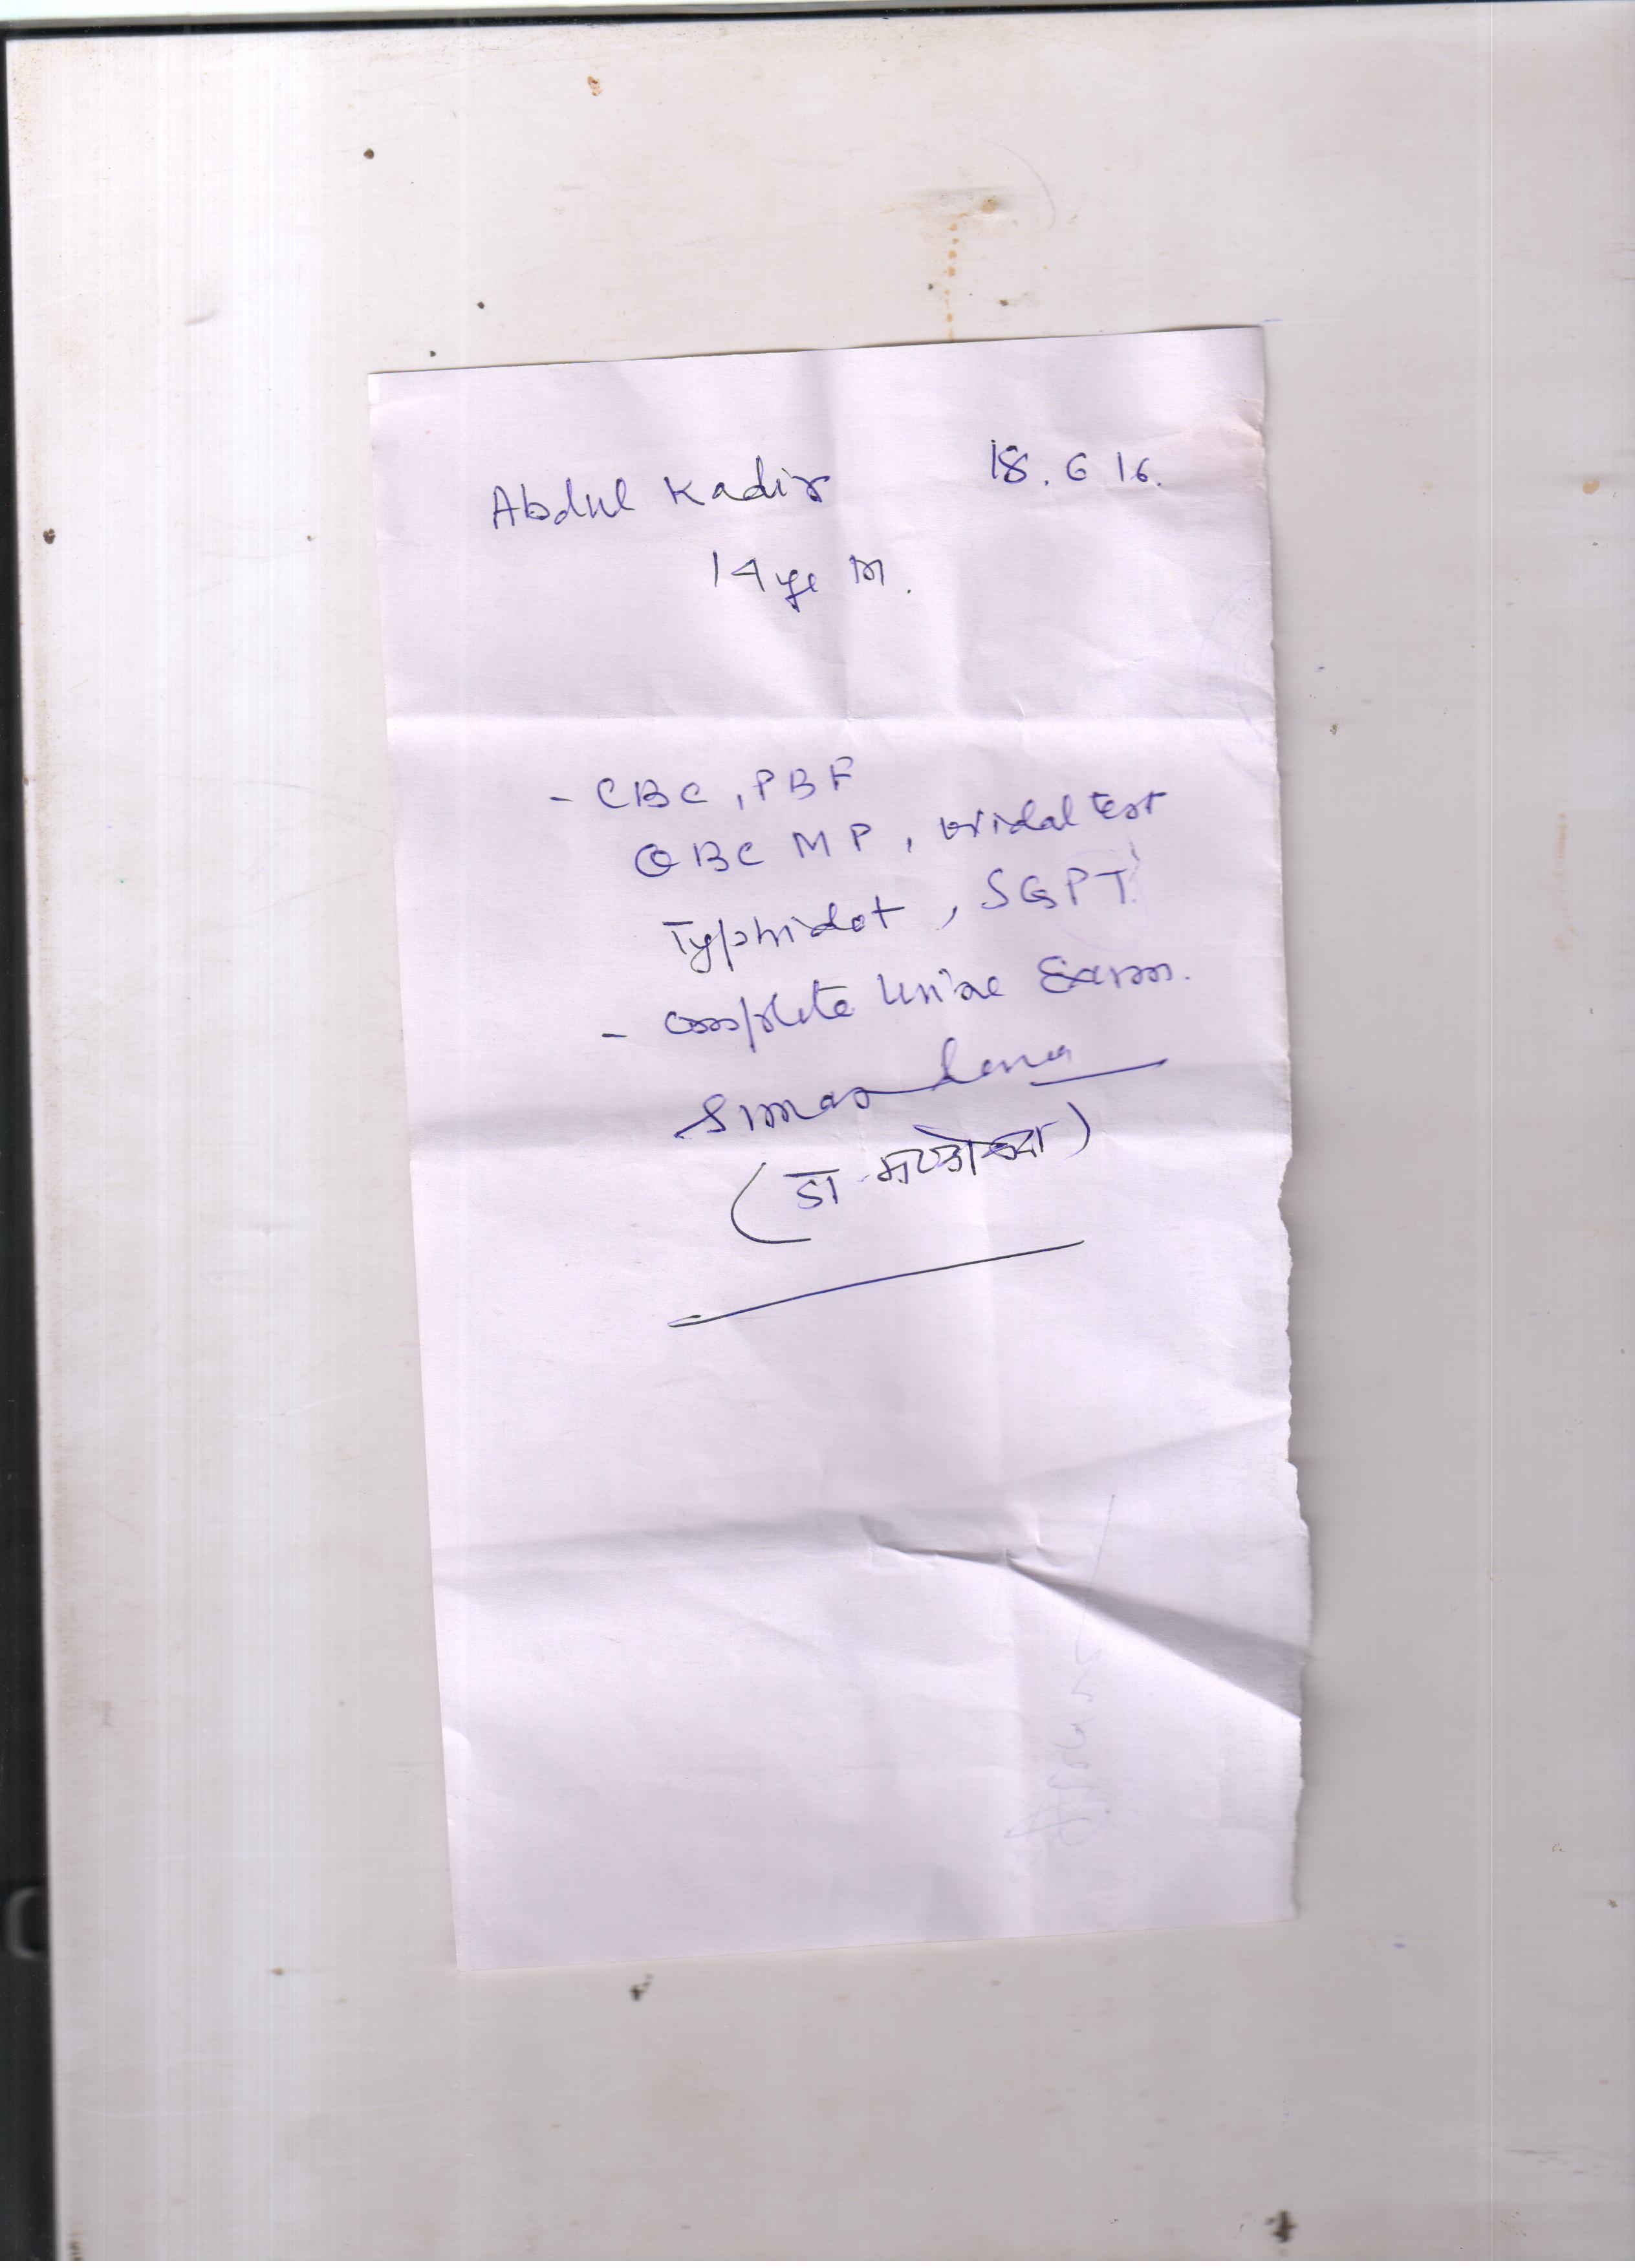 Abdul Kadir 18.6 16.
14 ye M.
- CBC, PBF
QBC MP, widal test
Typhidot, SGPT
- complete Urine Exam.
(डा